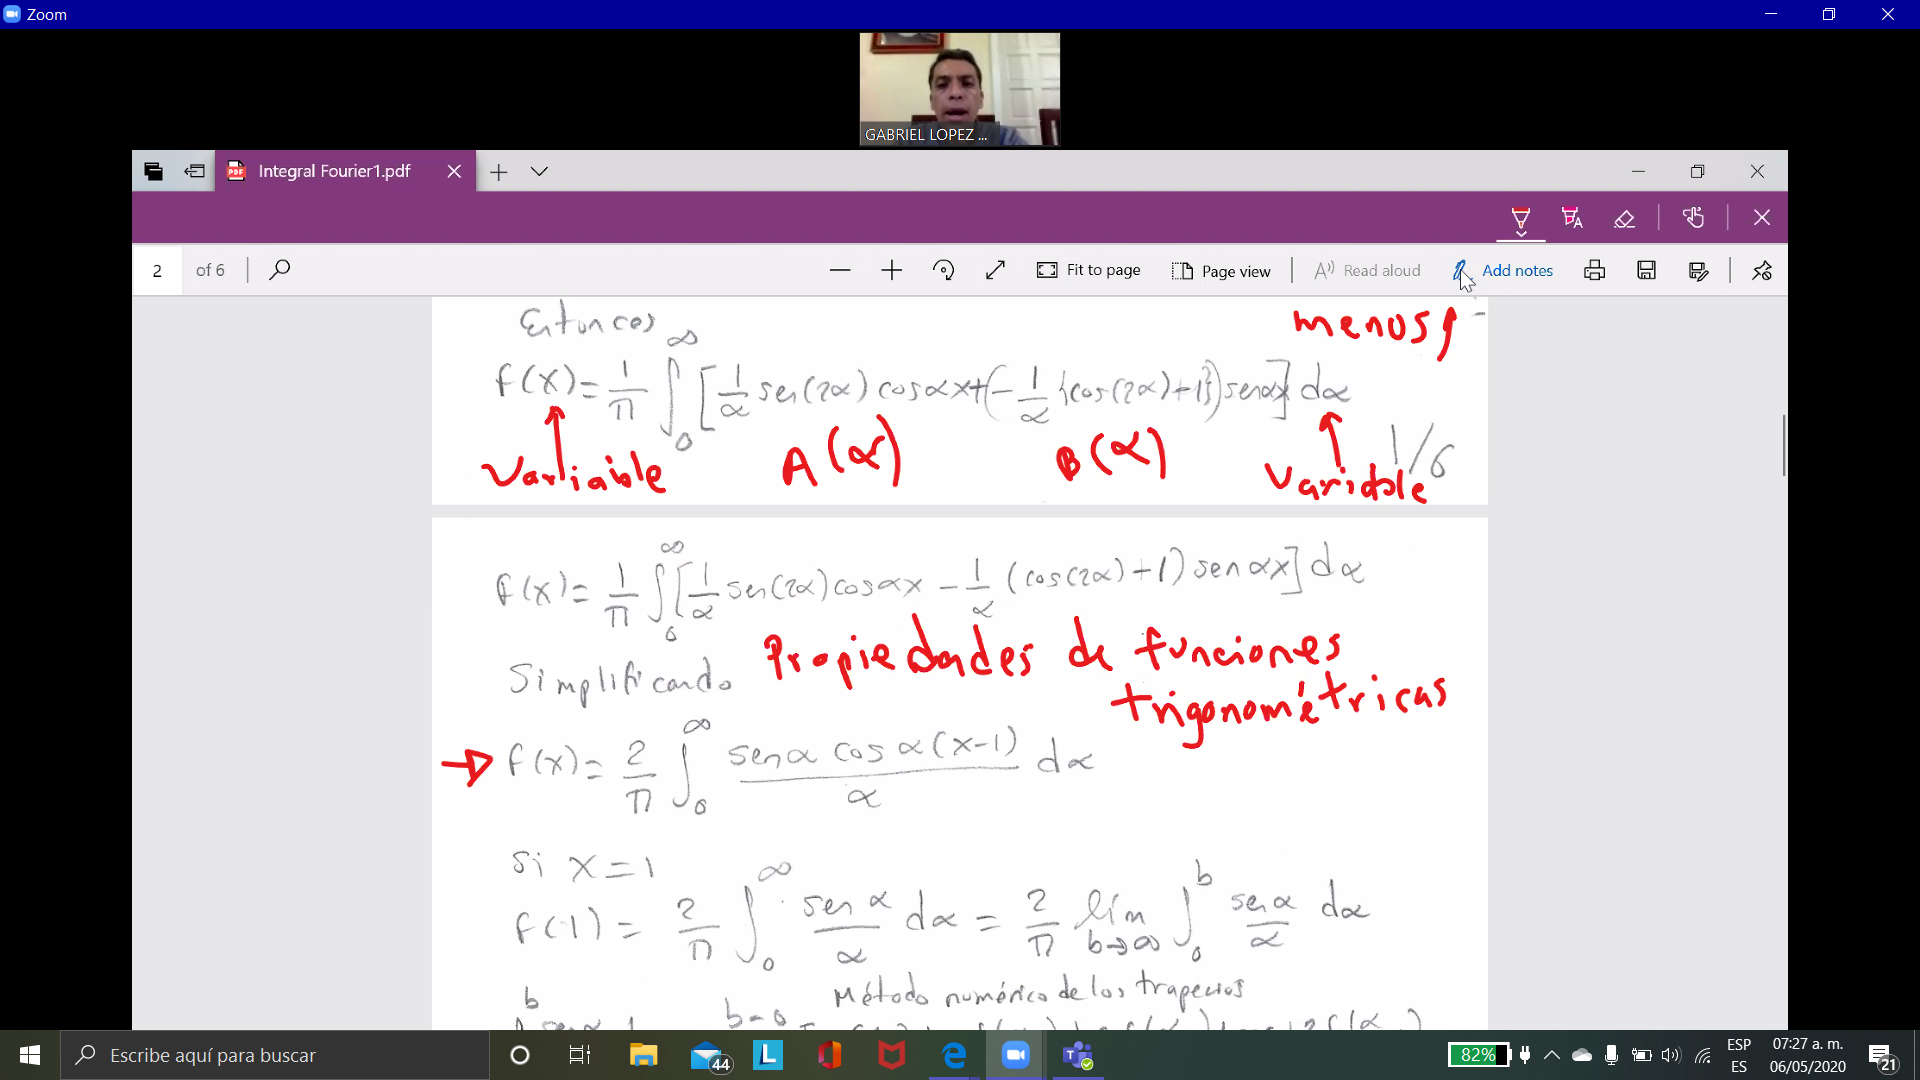 Zoom
GABRIEL LOPEZ ...
Integral Fourier1.pdf
2 of 6
Fit to page
Page view
Read aloud
Add notes
Entonces
menos
f(x)= 1/π ∫₀^∞ [1/α sen(2α) cosαx+(-1/α {cos(2α)+1})senαx] dα
Variable A(α) B(α) Variable
1/6
f(x)= 1/π ∫₀^∞ [1/α sen(2α)cosαx - 1/α (cos(2α)+1) sen αx] dα
Simplificando Propiedades de funciones
trigonométricas
→ f(x)= 2/π ∫₀^∞ senα cos α(x-1)/α dα
Si x=1
f(1) = 2/π ∫₀^∞ sen α/α dα = 2/π lím b→∞ ∫₀^b senα/α dα
Método numérico de los trapecios
b b-0
Escribe aquí para buscar
44
82%
ESP
ES
07:27 a. m.
06/05/2020
21